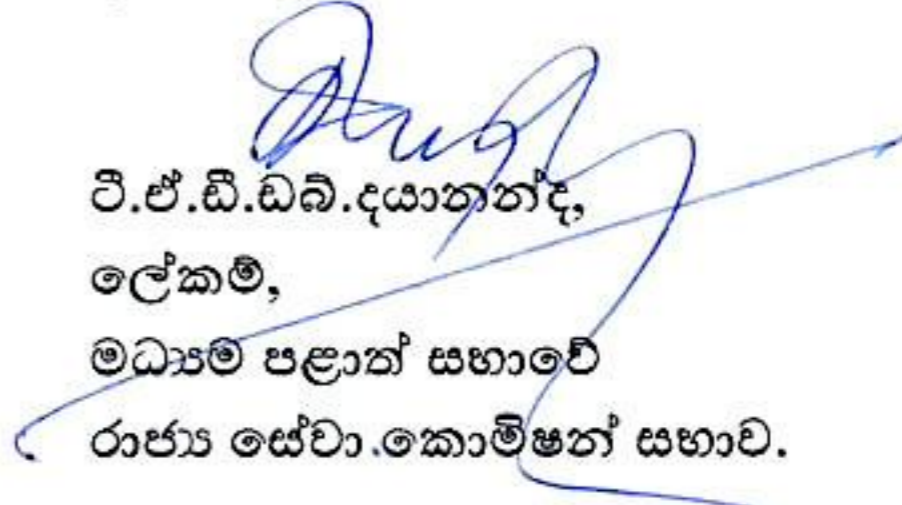 ටී.ඒ.ඩී.ඩබ්.දයානන්ද,
ලේකම්,
මධ්‍යම පළාත් සභාවේ
රාජ්‍ය සේවා කොමිෂන් සභාව.